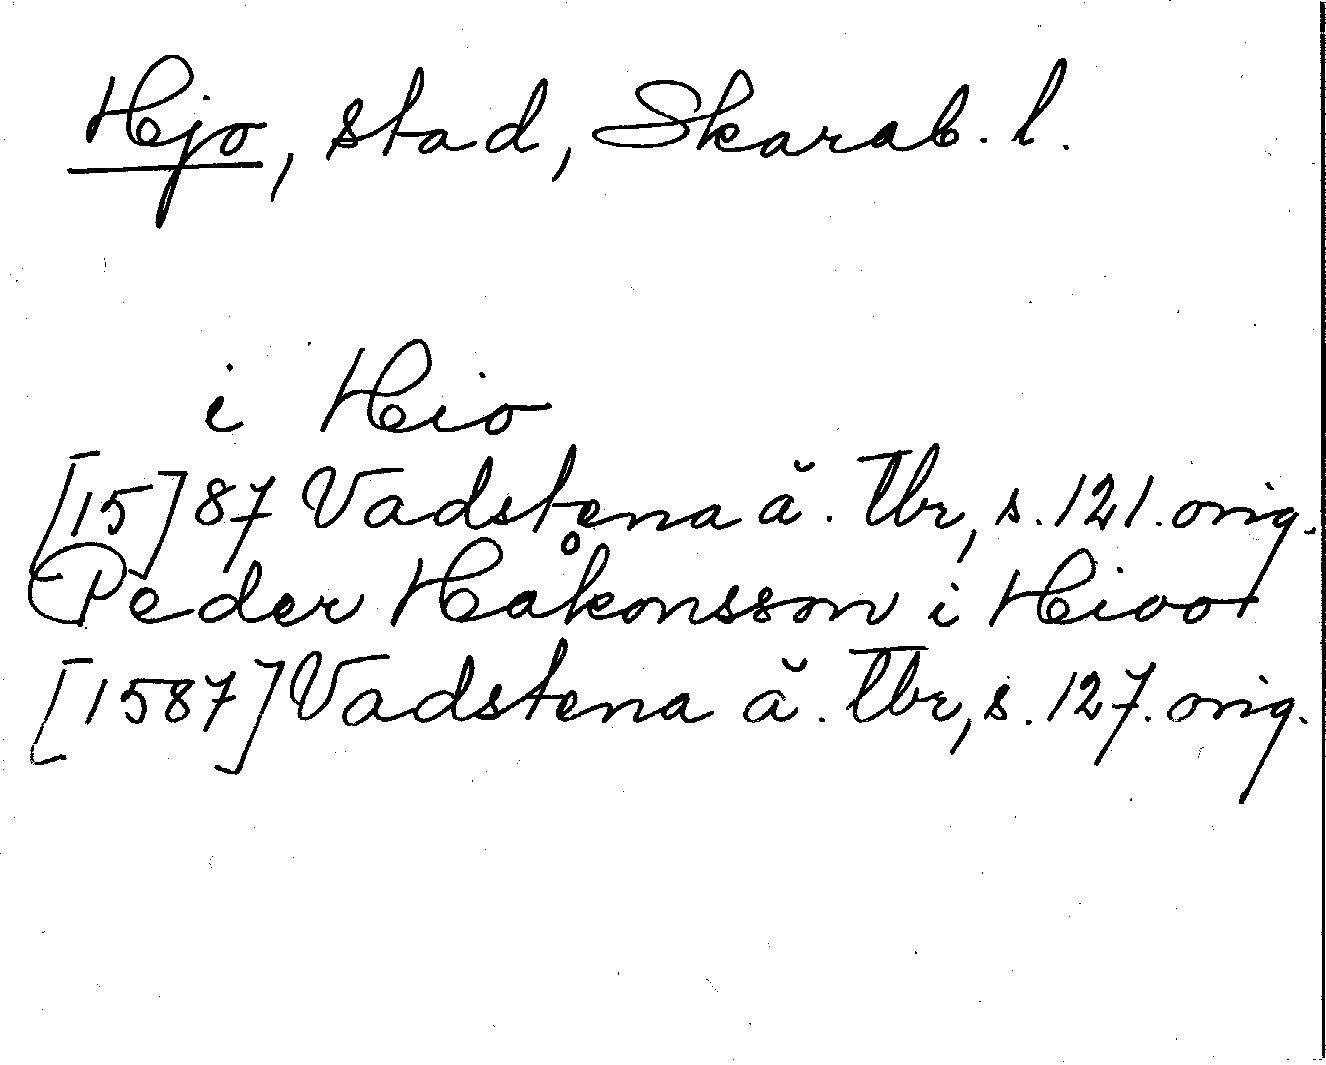 Hjo, stad, Skarab. l.
i Hio
[15]87 Vadstena ä. Tbr, s. 121. orig.
Peder Håkonsson i Hioo
[1587] Vadstena ä. Tbr, s. 127. orig.